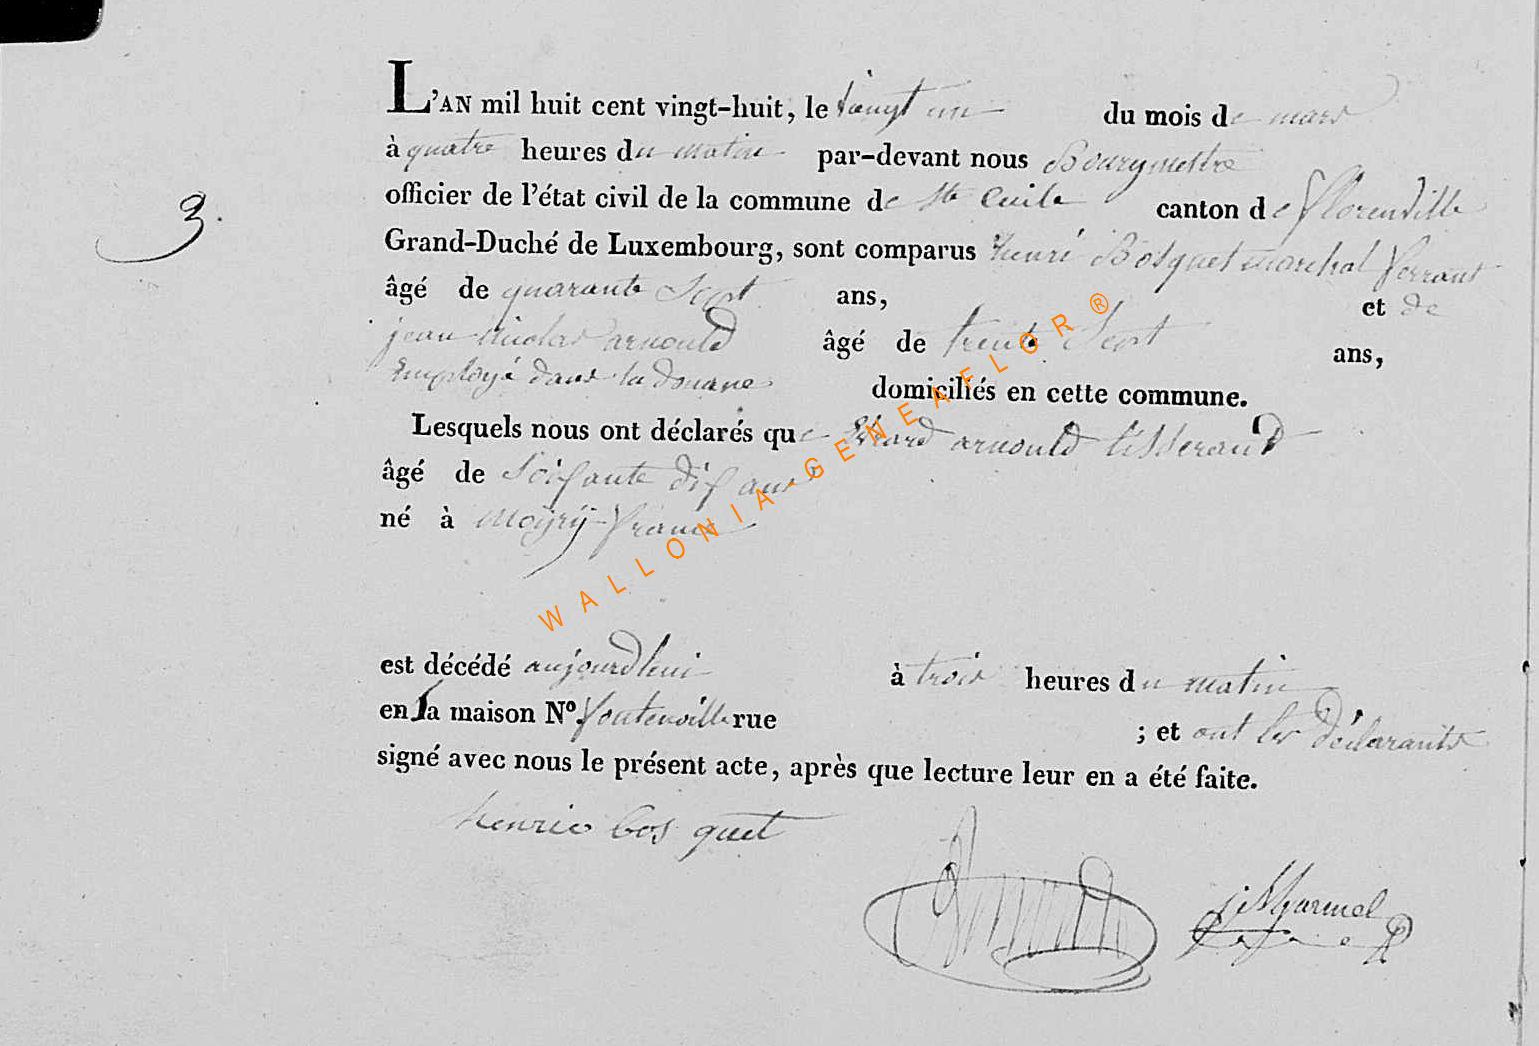 L'AN mil huit cent vingt-huit, le vingt un du mois de mars
à quatre heures du matin par-devant nous Bourgmestre
officier de l'état civil de la commune de Ste Cécile canton de Florenville
3.
Grand-Duché de Luxembourg, sont comparus henri Bosquet marchal ferrant
âgé de quarante Sept ans, et de
jean nicolas arnould âgé de trente Sept ans,
Employé dans la douane domiciliés en cette commune.
Lesquels nous ont déclarés que arnould tisserand
âgé de Soixante dix ans
né à france
est décédé aujourdhui à trois heures du matin
en sa maison N°. fontenoille rue ; et ont les déclarants
signé avec nous le présent acte, après que lecture leur en a été faite.
henric bosquet
WALLONIA-GENEAFLOR®